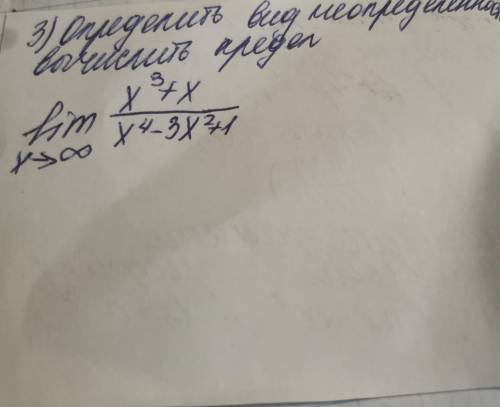 3) Определить вид неопределённос
вычислить предел
lim x³+x / x⁴-3x²+1
x→∞